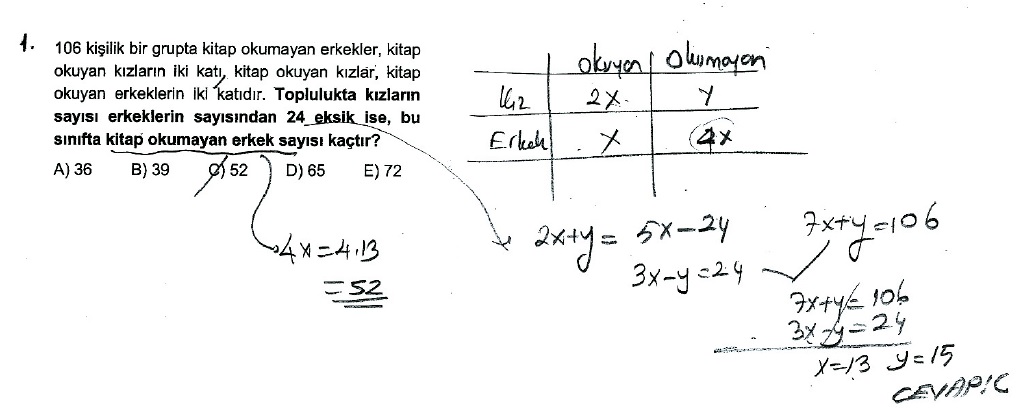 1. 106 kişilik bir grupta kitap okumayan erkekler, kitap
okuyan kızların iki katı, kitap okuyan kızlar, kitap
okuyan erkeklerin iki katıdır. Toplulukta kızların
sayısı erkeklerin sayısından 24 eksik ise, bu
sınıfta kitap okumayan erkek sayısı kaçtır?
A) 36 B) 39 C) 52 D) 65 E) 72
okuyan Okumayan
Kız 2x y
Erkek x 4x
4x=4.13
=52
2x+y= 5x-24
3x-y=24
7x+y=106
7x+y=106
3x-y=24
x=13 y=15
CEVAP:C